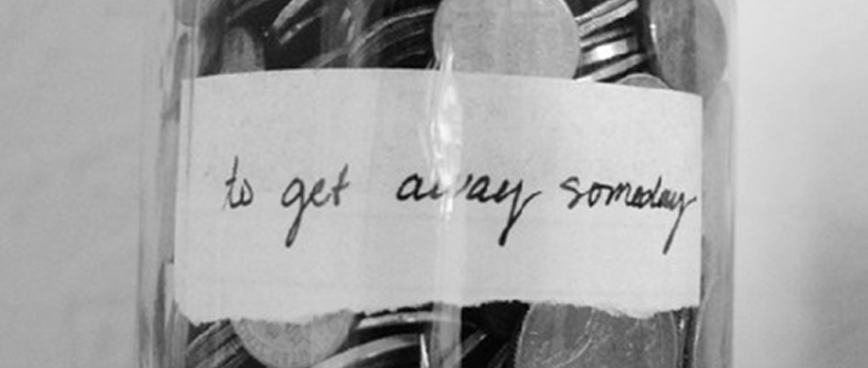 to get away someday